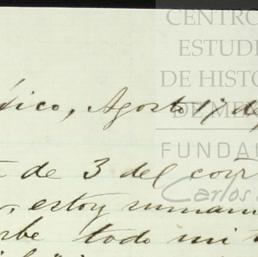 CENTRO
ESTUDI
DE HISTO
DE ME
FUNDA
Carlos
éxico, Agosto 1 de
de 3 del corr
, estoy sumam
rbe todo mi t